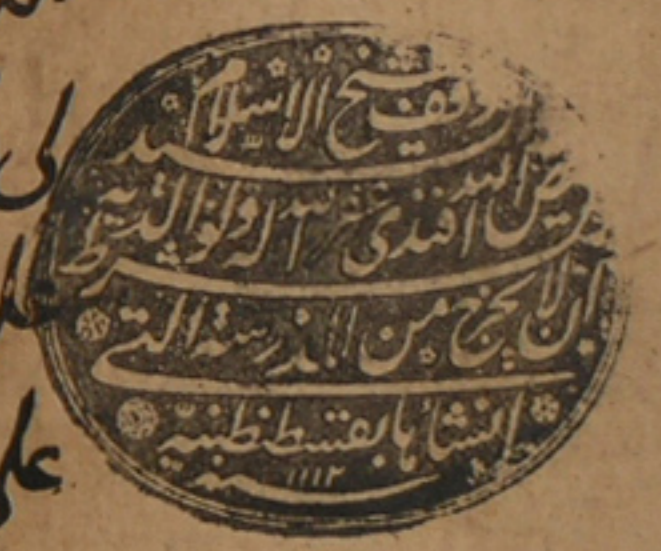 وقف شيخ الاسلام السيد
فيض الله افندى غفر الله له ولوالديه بشرط
ان لا يخرج من المدرسة التي
انشأها بقسطنطنية
سنه ١١١٢